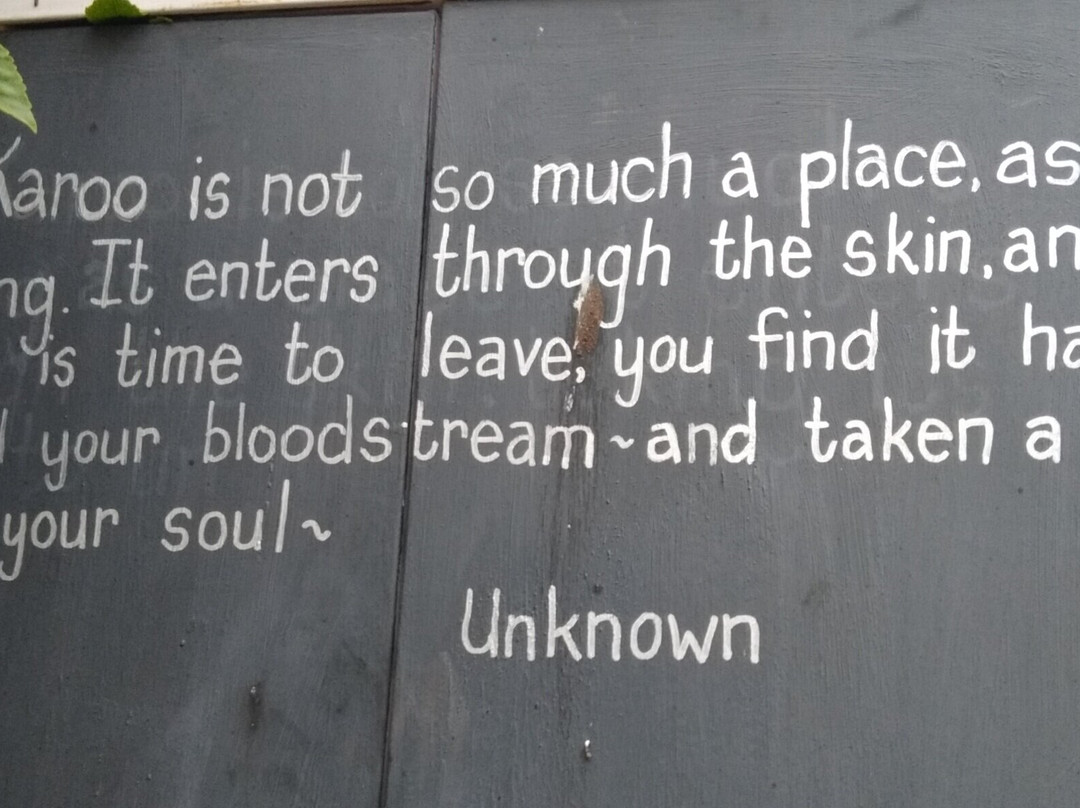 Karoo is not so much a place, as
It enters through the skin, an
is time to leave, you find it ha
your bloodstream ~ and taken a
your soul ~
Unknown